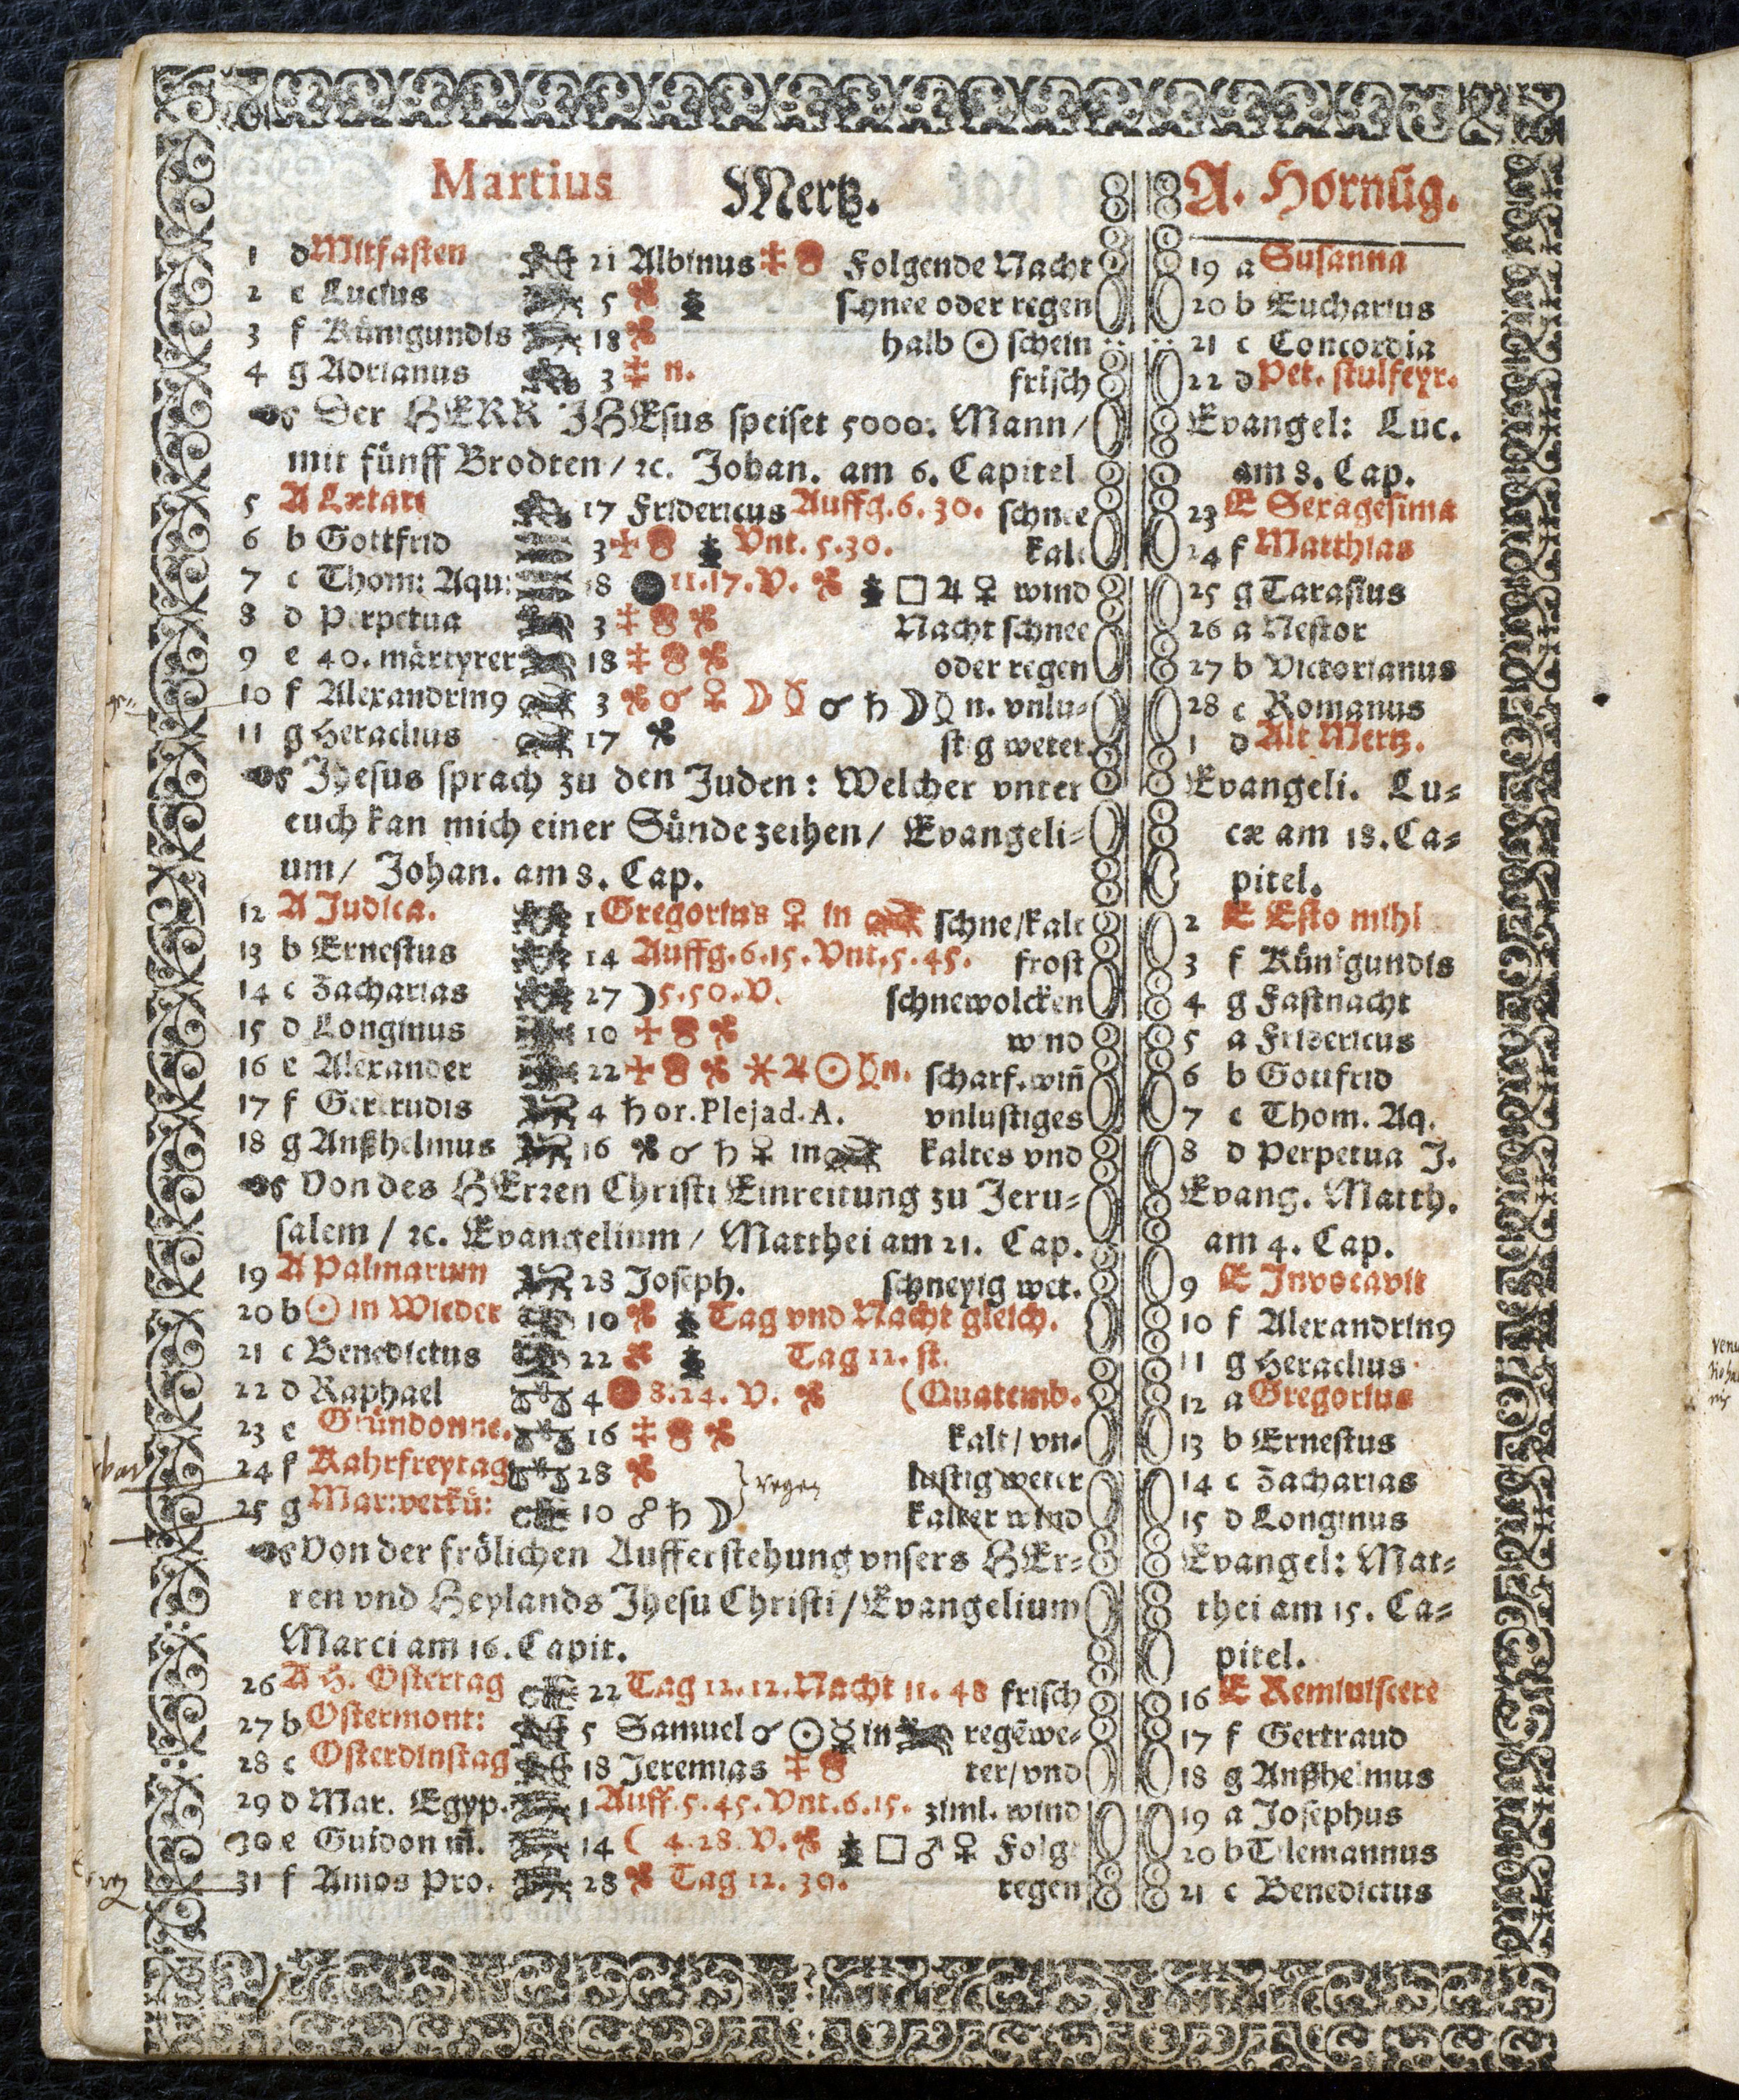 Martius Mertz. A. Hornũg.
1 d Mitfasten 21 Albinus Folgende Nacht 19 a Susanna
2 e Lucius 5 schnee oder regen 20 b Eucharius
3 f Künigundis 18 halb ☉ schein 21 c Concordia
4 g Adrianus 3 n. frisch 22 d Pet. stulfeyr.
Der HERR JHEsus speiset 5000. Mann/ Evangel: Luc.
mit fünff Brodten/ ꝛc. Johan. am 6. Capitel am 8. Cap.
5 A Lætare 17 Fridericus Auffg. 6. 30. schnee 23 E Sexagesima
6 b Gottfrid 3 Vnt. 5. 30. kalt 24 f Matthias
7 c Thom: Aqu: 18 11. 17. V. □ ♃ ♀ wind 25 g Tarasius
8 d Perpetua 3 Nacht schnee 26 a Nestor
9 e 40. märtyrer 18 oder regen 27 b Victorianus
10 f Alexandrinꝰ 3 ☌ ♀ ☽ ☿ ☌ ♄ ☽ ☿ n. vnlu- 28 c Romanus
11 g Heraclius 17 stig weter. 1 d Alt Mertz.
Jhesus sprach zu den Juden: Welcher vnter Evangeli. Lu-
euch kan mich einer Sünde zeihen/ Evangeli- cæ am 18. Ca-
um/ Johan. am 8. Cap. pitel.
12 A Judica. 1 Gregorius ♀ in schne/kalt 2 E Esto mihi
13 b Ernestus 14 Auffg. 6. 15. Vnt. 5. 45. frost 3 f Künigundis
14 c Zacharias 27 ☽ 5. 50. V. schnewolcken 4 g Fastnacht
15 d Longinus 10 wind 5 a Fridericus
16 e Alexander 22 ⚹ ♃ ☉ ☿ n. scharf. win̄ 6 b Gottfrid
17 f Gertrudis 4 ♄ or. Plejad. A. vnlustiges 7 c Thom. Aq.
18 g Anßhelmus 16 ☌ ♄ ♀ in kaltes vnd 8 d Perpetua J.
Von des HErꝛen Christi Einreitung zu Jeru- Evang. Matth.
salem/ ꝛc. Evangelium/ Matthei am 21. Cap. am 4. Cap.
19 A Palmarum 28 Joseph. schneyig wet. 9 E Invocavit
20 b ☉ in Wieder 10 Tag vnd Nacht gleich. 10 f Alexandrinꝰ
21 c Benedictus 22 Tag 12. st. 11 g Heraclius
22 d Raphael 4 8. 24. V. (Quatemb. 12 a Gregorius
23 e Gründonne. 16 kalt/ vn- 13 b Ernestus
24 f Kahrfreytag 28 regen lustig weter 14 c Zacharias
25 g Mar: verkü: 10 ♂ ♄ ☽ kalter wind 15 d Longinus
Von der frölichen Aufferstehung vnsers HEr- Evangel: Mat-
ren vnd Heylands Jhesu Christi/ Evangelium thei am 15. Ca-
Marci am 16. Capit. pitel.
26 A H. Ostertag 22 Tag 12. 12. Nacht 11. 48 frisch 16 E Reminiscere
27 b Ostermont: 5 Samuel ☌ ☉ ☿ in regẽwe- 17 f Gertraud
28 c Osterdinstag 18 Jeremias ter/ vnd 18 g Anßhelmus
29 d Mar. Egyp. 1 Auff. 5. 45. Vnt. 6. 15. ziml. wind 19 a Josephus
30 e Guidon m̄. 14 ( 4. 28. V. □ ♂ ♀ Folg 20 b Tilemannus
31 f Amos Pro. 28 Tag 12. 30. regen 21 c Benedictus